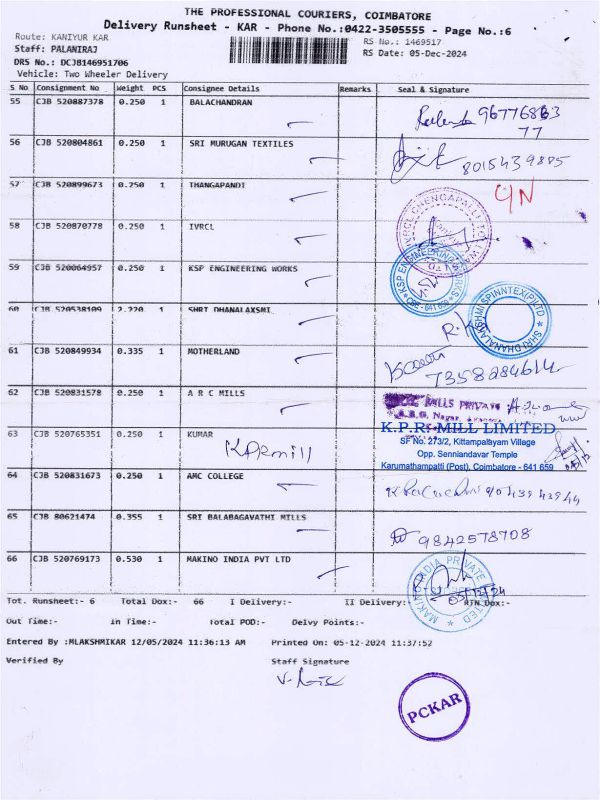 THE PROFESSIONAL COURIERS, COIMBATORE
Delivery Runsheet - KAR - Phone No.:0422-3505555 - Page No.:6
Route: KANIYUR KAR
RS No.: 1469517
Staff: PALANIRAJ
RS Date: 05-Dec-2024
DRS No.: DCJB146951706
Vehicle: Two Wheeler Delivery
S No Consignment No Weight PCS Consignee Details Remarks Seal & Signature
55 CJB 520887378 0.250 1 BALACHANDRAN
77
56 CJB 520804861 0.250 1 SRI MURUGAN TEXTILES 8015439885
57 CJB 520899673 0.250 1 THANGAPANDI
58 CJB 520870778 0.250 1 IVRCL
59 CJB 520064957 0.250 1 KSP ENGINEERING WORKS
KSP ENGINEERING WORKS
60 CJB 520538109 2.220 1 SHRI DHANALAXSMI
SHRI DHANALAKSHMI SPINNTEX(P)LTD
R.K
61 CJB 520849934 0.335 1 MOTHERLAND
62 CJB 520831578 0.250 1 A R C MILLS
MILLS PRIVATE
63 CJB 520765351 0.250 1 KUMAR KPRmill
K.P.R. MILL LIMITED
SF No. 273/2, Kittampalayam Village
Opp. Senniandavar Temple
Karumathampatti (Post), Coimbatore - 641 659
64 CJB 520831673 0.250 1 AMC COLLEGE
65 CJB 80621474 0.355 1 SRI BALABAGAVATHI MILLS 9842578708
66 CJB 520769173 0.530 1 MAKINO INDIA PVT LTD
MAKINO INDIA PRIVATE
05/12/24
Tot. Runsheet:- 6 Total Dox:- 66 I Delivery:- II Delivery:- RTN Dox:-
Out Time:- In Time:- Total POD:- Delvy Points:-
Entered By :MLAKSHMIKAR 12/05/2024 11:36:13 AM Printed On: 05-12-2024 11:37:52
Verified By Staff Signature
PCKAR